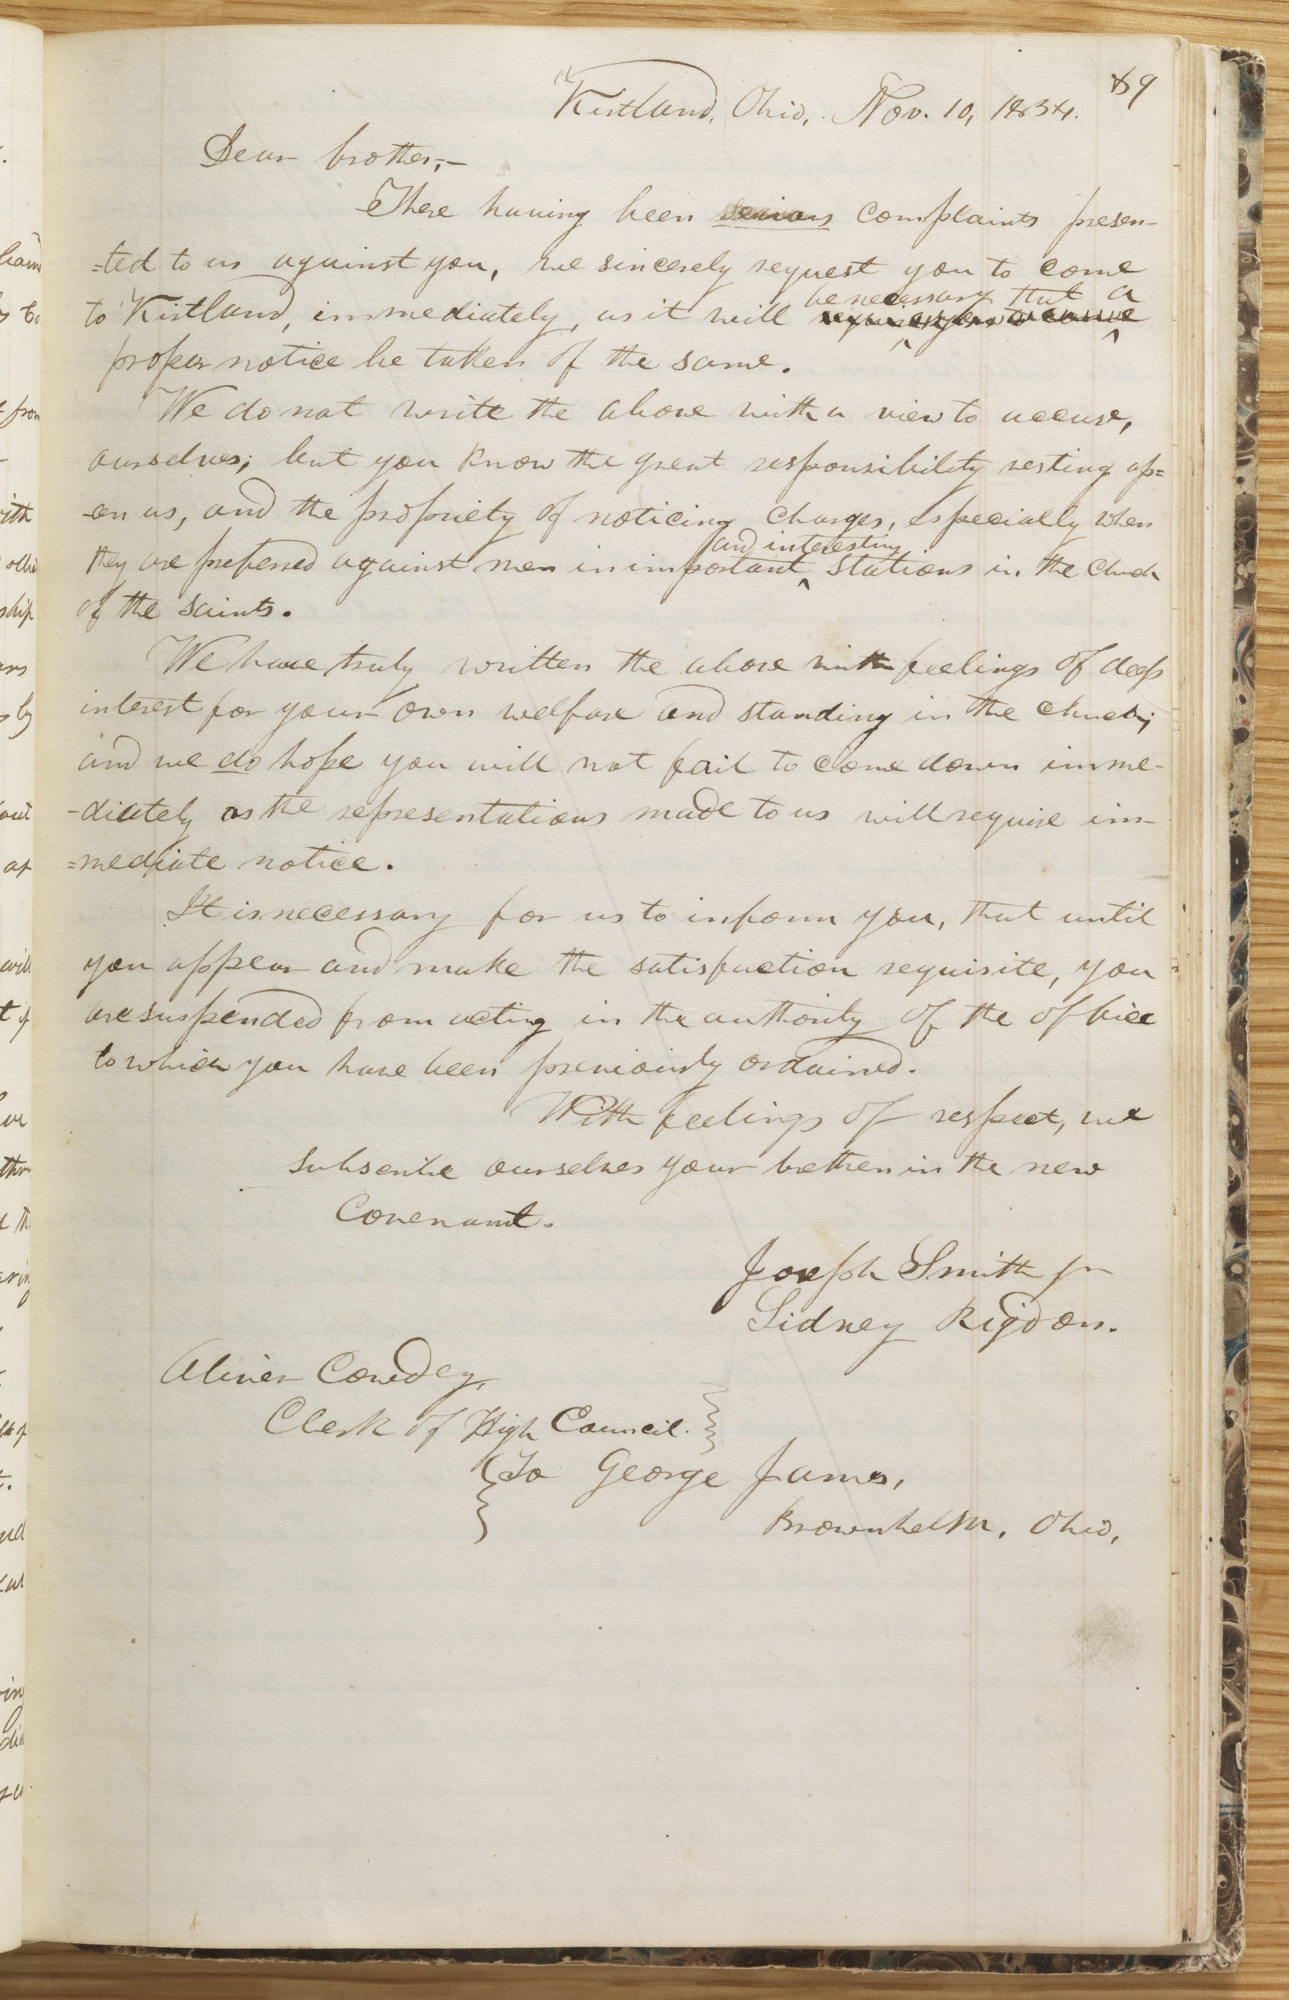 89
Kirtland, Ohio, Nov. 10, 1834.
Dear brother,—
There having been serious complaints presen-
=ted to us against you, we sincerely request you to come
be necessary that a
to Kirtland, immediately, as it will
proper notice be taken of the same.
We do not write the above with a view to accuse,
ourselves; but you know the great responsibility resting up=
-on us, and the propriety of noticing charges, especially when
and interesting
they are preferred against men in important ‸ stations in the church
of the saints.
We have truly written the above with feelings of deep
interest for your own welfare and standing in the church;
and we do hope you will not fail to come down imme-
-diately as the representations made to us will require im-
=mediate notice.
It is necessary for us to inform you, that until
you appear and make the satisfaction requisite, you
are suspended from acting in the authority of the office
to which you have been previously ordained.
With feelings of respect, we
subscribe ourselves your brethren in the new
Covenant.
Joseph Smith jr
Sidney Rigdon.
Oliver Cowdery,
Clerk of High Council. }
{ To George James,
Brownhelm, Ohio,